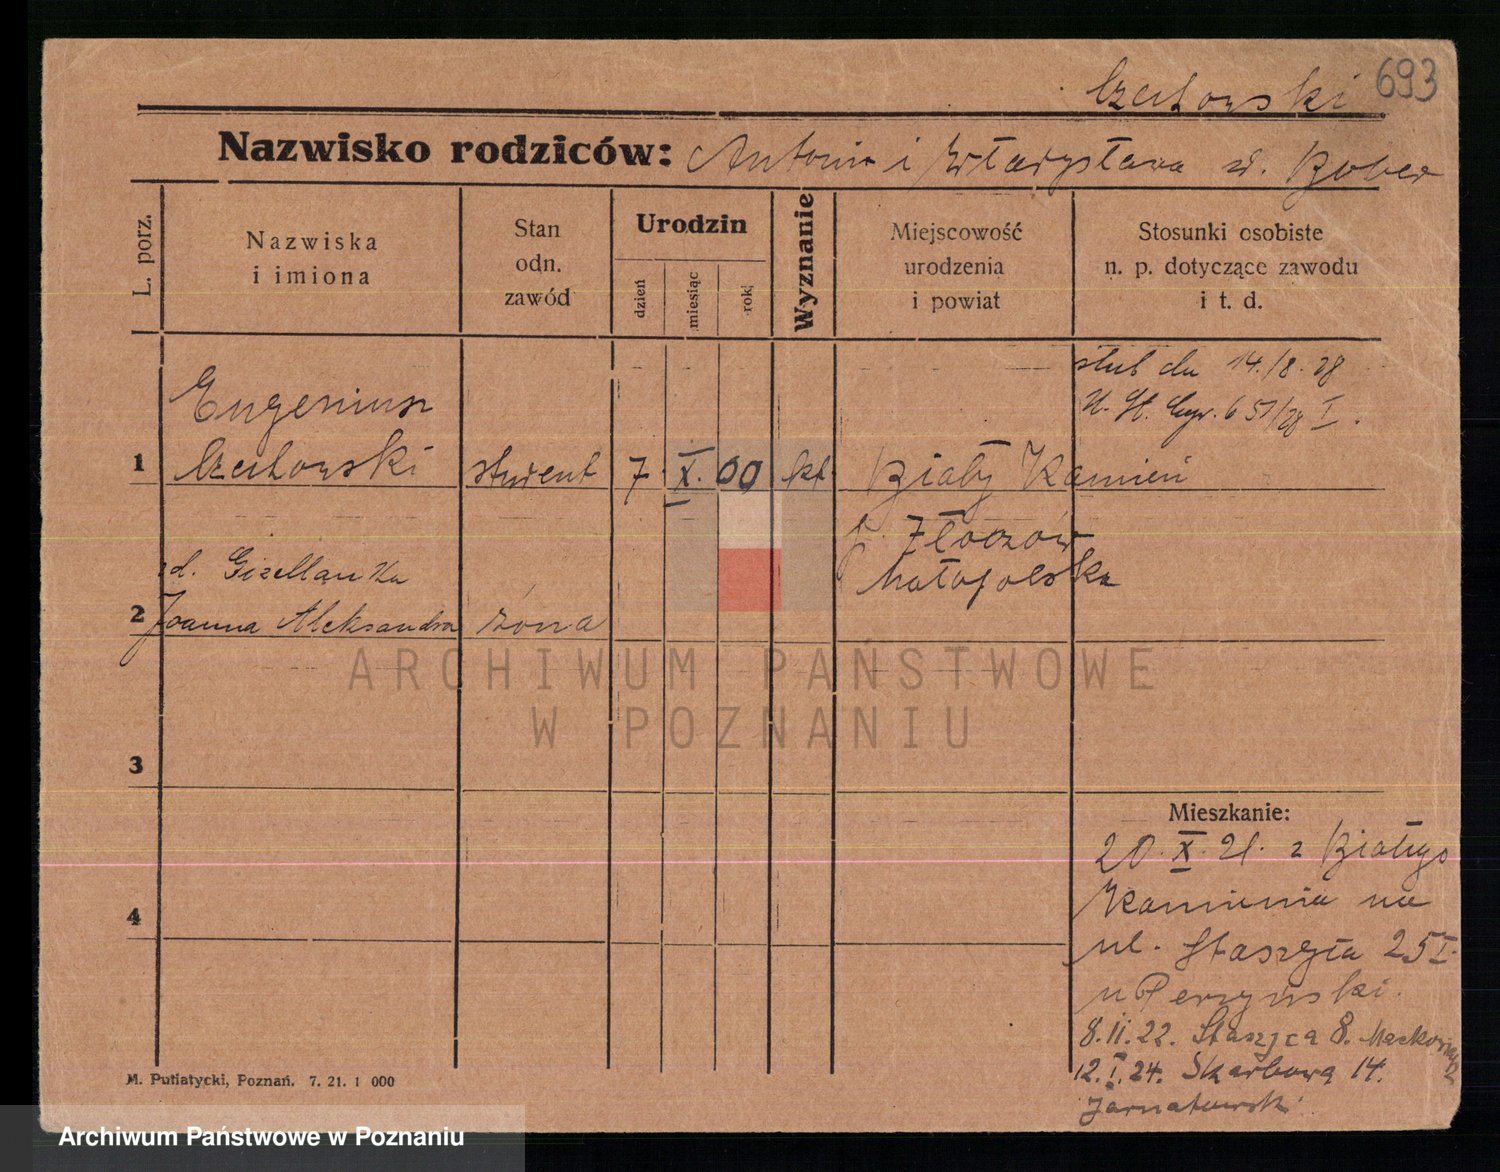 Czechowski 693
Nazwisko rodziców: Antoni i Władysława zd. Bober
L. porz.
Nazwiska
i imiona
Stan
odn.
zawód
Urodzin
dzień
miesiąc
rok
Wyznanie
Miejscowość
urodzenia
i powiat
Stosunki osobiste
n. p. dotyczące zawodu
i t. d.
ślub dn 14./8. 28
U. St. 651/28 I.
Eugeniusz
1 Czechowski student 7 X. 00 kt Biały Kamień
p. Złoczów
Małopolska
zd. Gizellanka
2 Joanna Aleksandra żona
ARCHIWUM PAŃSTWOWE
W POZNANIU
3
4
Mieszkanie:
20. X. 21. z Białego
Kamienia na
ul. Staszyca 25 I.
u Perzyński.
8.II.22. Staszyca 8.
12.I.24. Skarbowa 14.
Jarnatowski
M. Putiatycki, Poznań. 7. 21. 1 000
Archiwum Państwowe w Poznaniu